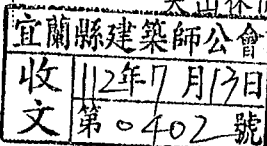 宜蘭縣建築師公會
收文
112年7月13日
第0402號